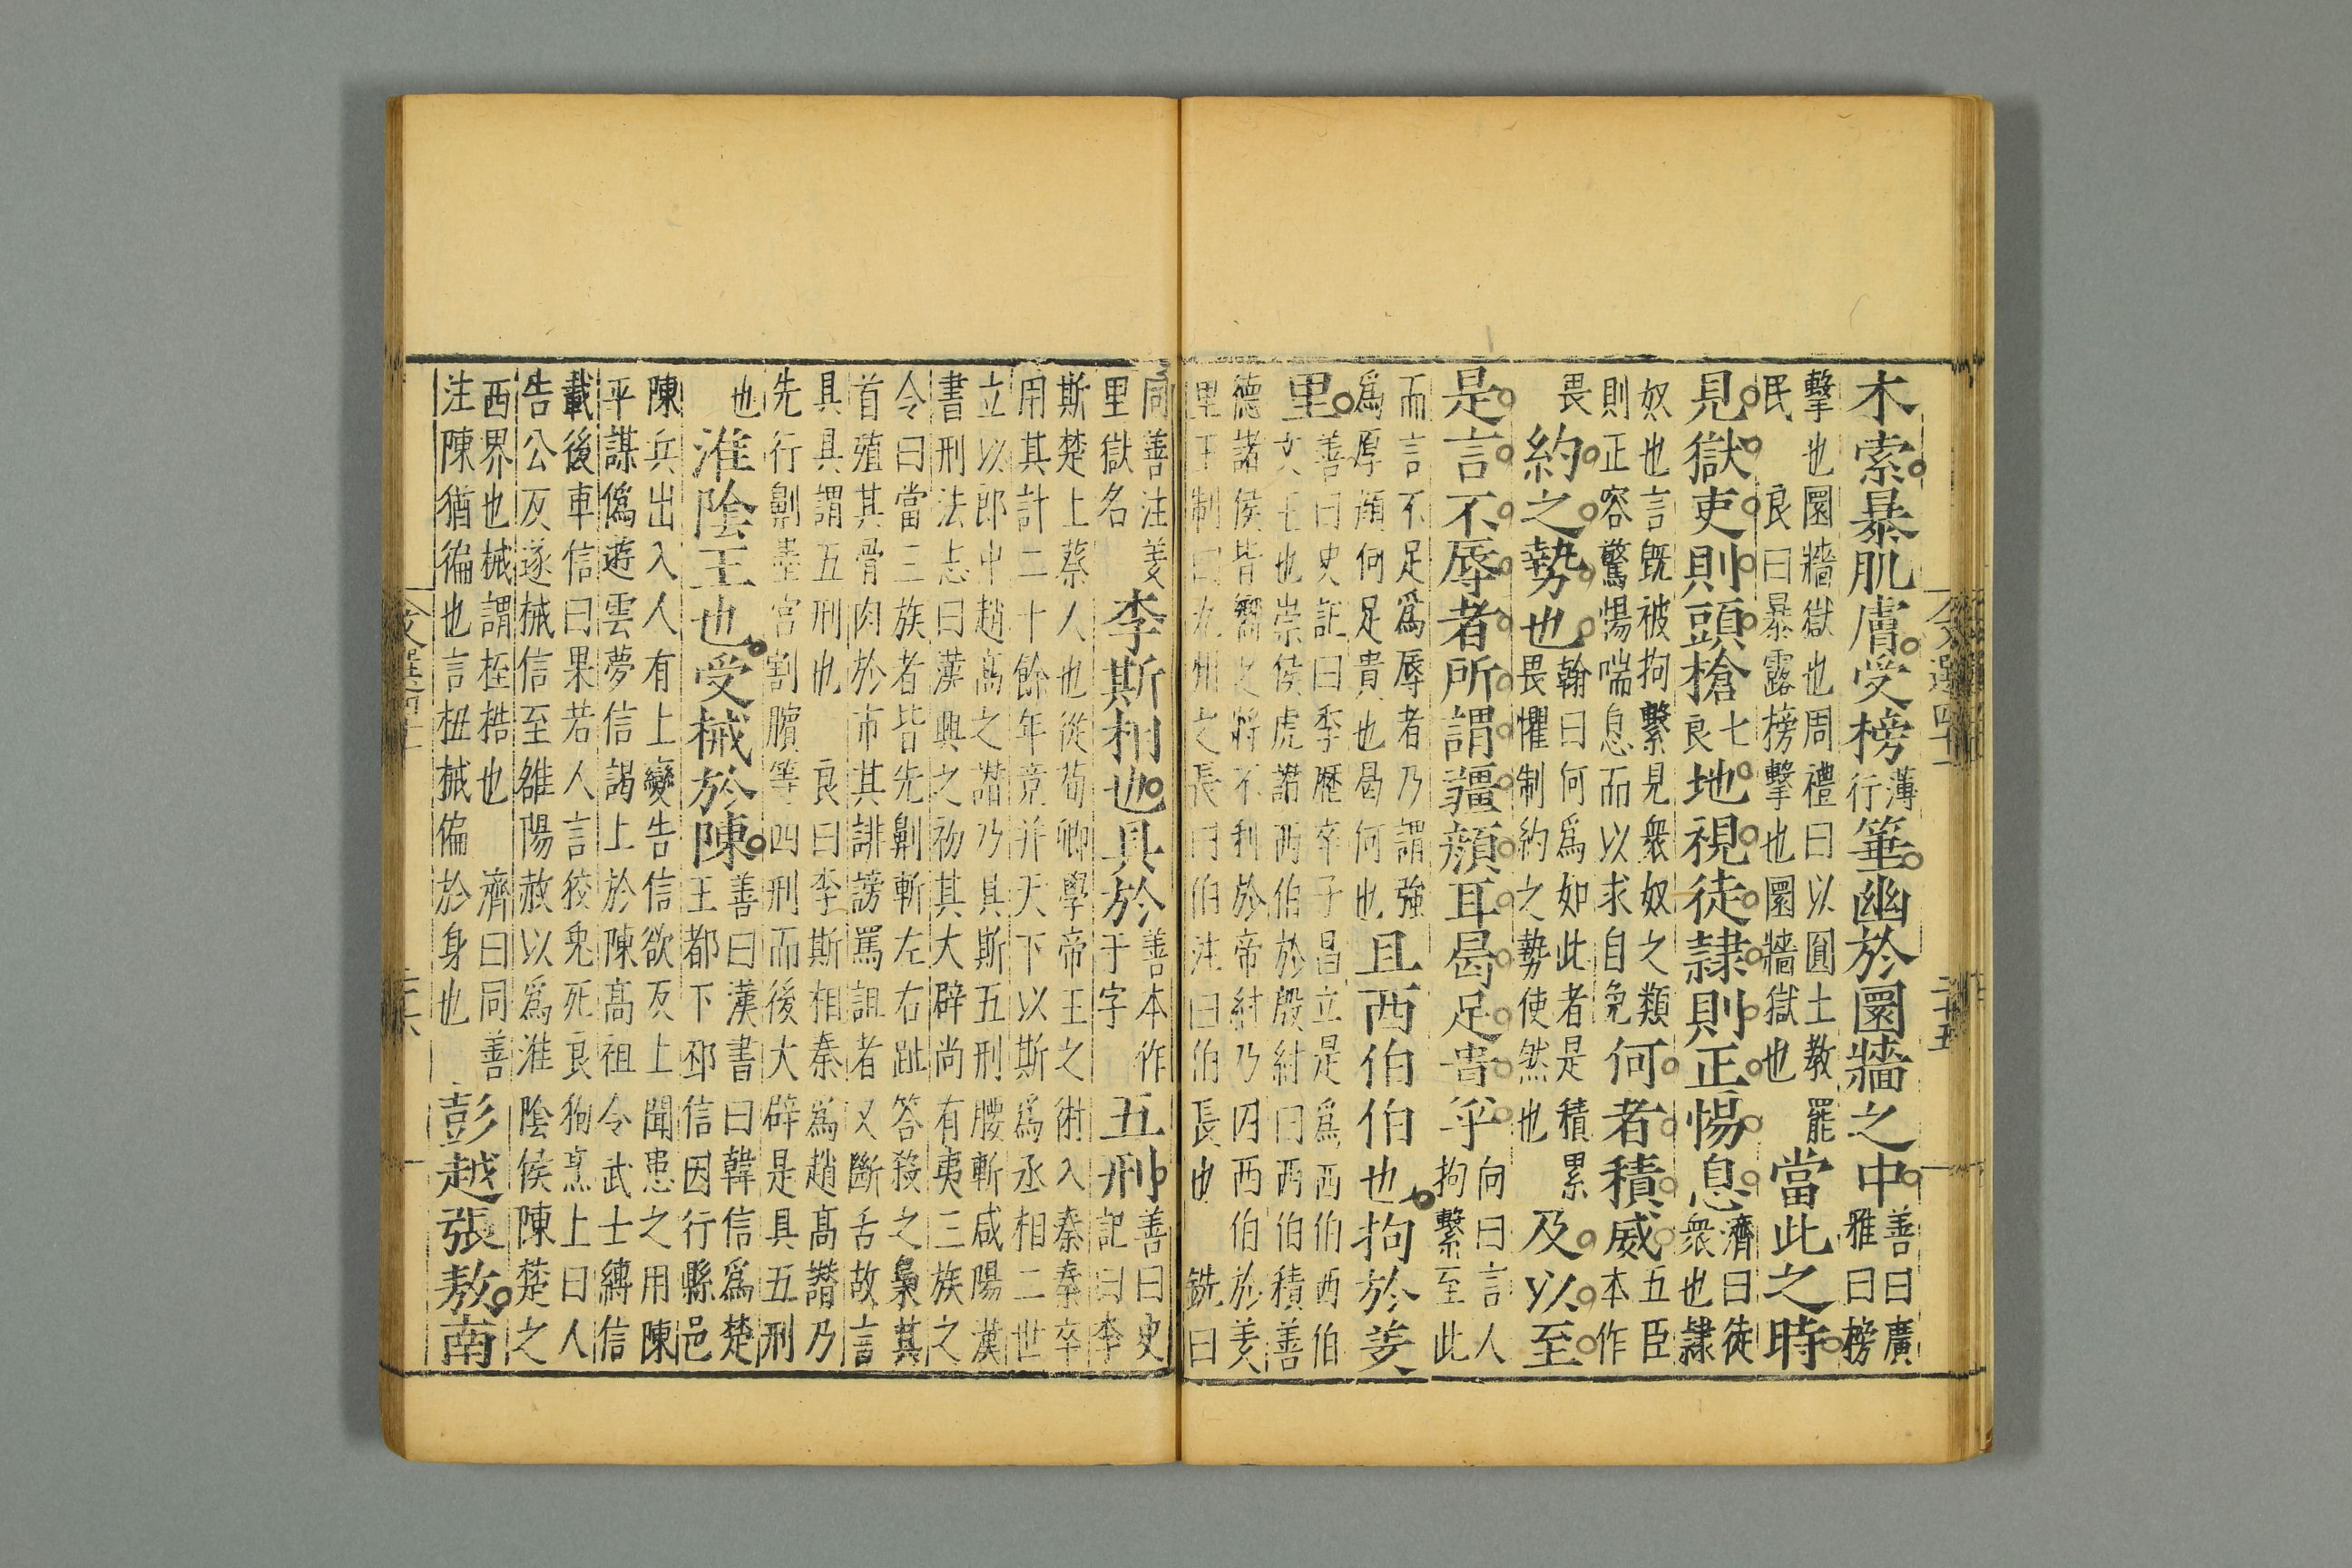 文選四十一 二十五
木索暴肌膚受榜薄行箠幽於圜牆之中善曰廣雅曰榜
擊也圜牆獄也周禮曰以圓土教罷民 良曰暴露榜擊也圜牆獄也當此之時
見獄吏則頭槍七良地視徒隷則正惕息濟曰徒衆也隷
奴也言旣被拘繫見衆奴之類則正容驚惕喘息而以求自免何者積威五臣本作
畏約之勢也翰曰何爲如此者是積累畏懼制約之勢使然也及以至
是言不辱者所謂彊顔耳曷足貴乎向曰言人拘繫至此
而言不足爲辱者乃謂強爲厚顔何足貴也曷何也且西伯伯也拘於羑
里善曰史記曰季歷卒子昌立是爲西伯西伯文王也崇侯虎譖西伯於殷紂曰西伯積善
德諸侯皆嚮之將不利於帝紂乃囚西伯於羑里王制曰九州之長曰伯注曰伯長也 銑曰
同善注羑里獄名李斯相也具於善本作于字五刑善曰史記曰李
斯楚上蔡人也從荀卿學帝王之術入秦秦卒用其計二十餘年竟并天下以斯爲丞相二世
立以郎中趙高之譖乃具斯五刑腰斬咸陽漢書刑法志曰漢興之初其大辟尚有夷三族之
令曰當三族者皆先劓斬左右趾笞殺之梟其首殖其骨肉於市其誹謗罵詛者又斷舌故言
具具謂五刑也 良曰李斯相秦爲趙高譖乃先行劓墨宮割臏等四刑而後大辟是具五刑
也淮陰王也受械於陳善曰漢書曰韓信爲楚王都下邳信因行縣邑
陳兵出入人有上變告信欲反上聞患之用陳平謀僞遊雲夢信謁上於陳高祖令武士縛信
載後車信曰果若人言狡兔死良狗烹上曰人告公反遂械信至雒陽赦以爲淮陰侯陳楚之
西界也械謂桎梏也 濟曰同善注陳猶徧也言杻械偏於身也彭越張敖南
文選四十一 二十六